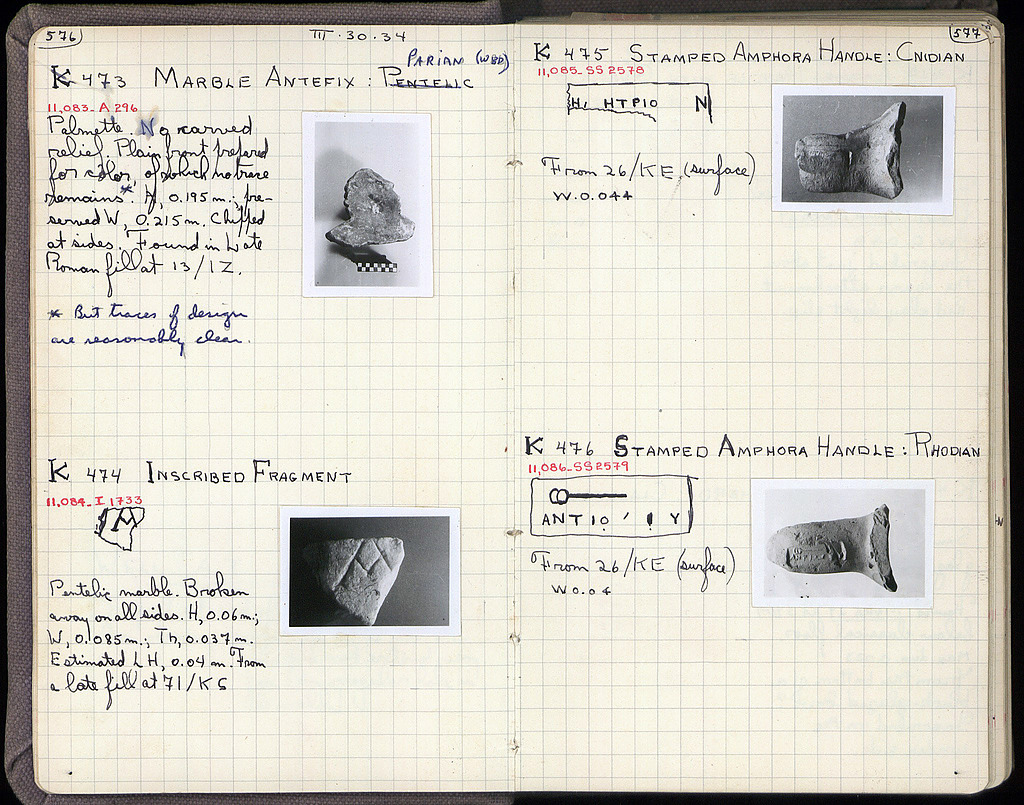 576
III·30·34
PARIAN (WBD)
K 473 MARBLE ANTEFIX : PENTELIC
11,083-A 296
Palmette. No carved
relief. Plain front prepared
for color, of which no trace
remains*. H, 0.195 m.; pre-
served W, 0.215 m. Chipped
at sides. Found in Late
Roman fill at 13/IZ.
* But traces of design
are reasonably clear.
K 474 INSCRIBED FRAGMENT
11,084-I 1733
M
Pentelic marble. Broken
away on all sides. H, 0.06 m;
W, 0.085 m.; Th, 0.037 m.
Estimated LH, 0.04 m. From
a late fill at 71/KS
577
K 475 STAMPED AMPHORA HANDLE: CNIDIAN
11,085-SS 2578
ΗΤΡΙΟ Ν
From 26/KE (surface)
W. 0.044
K 476 STAMPED AMPHORA HANDLE: RHODIAN
11,086-SS 2579
ΑΝΤΙΟ ' Υ
From 26/KE (surface)
W 0.04